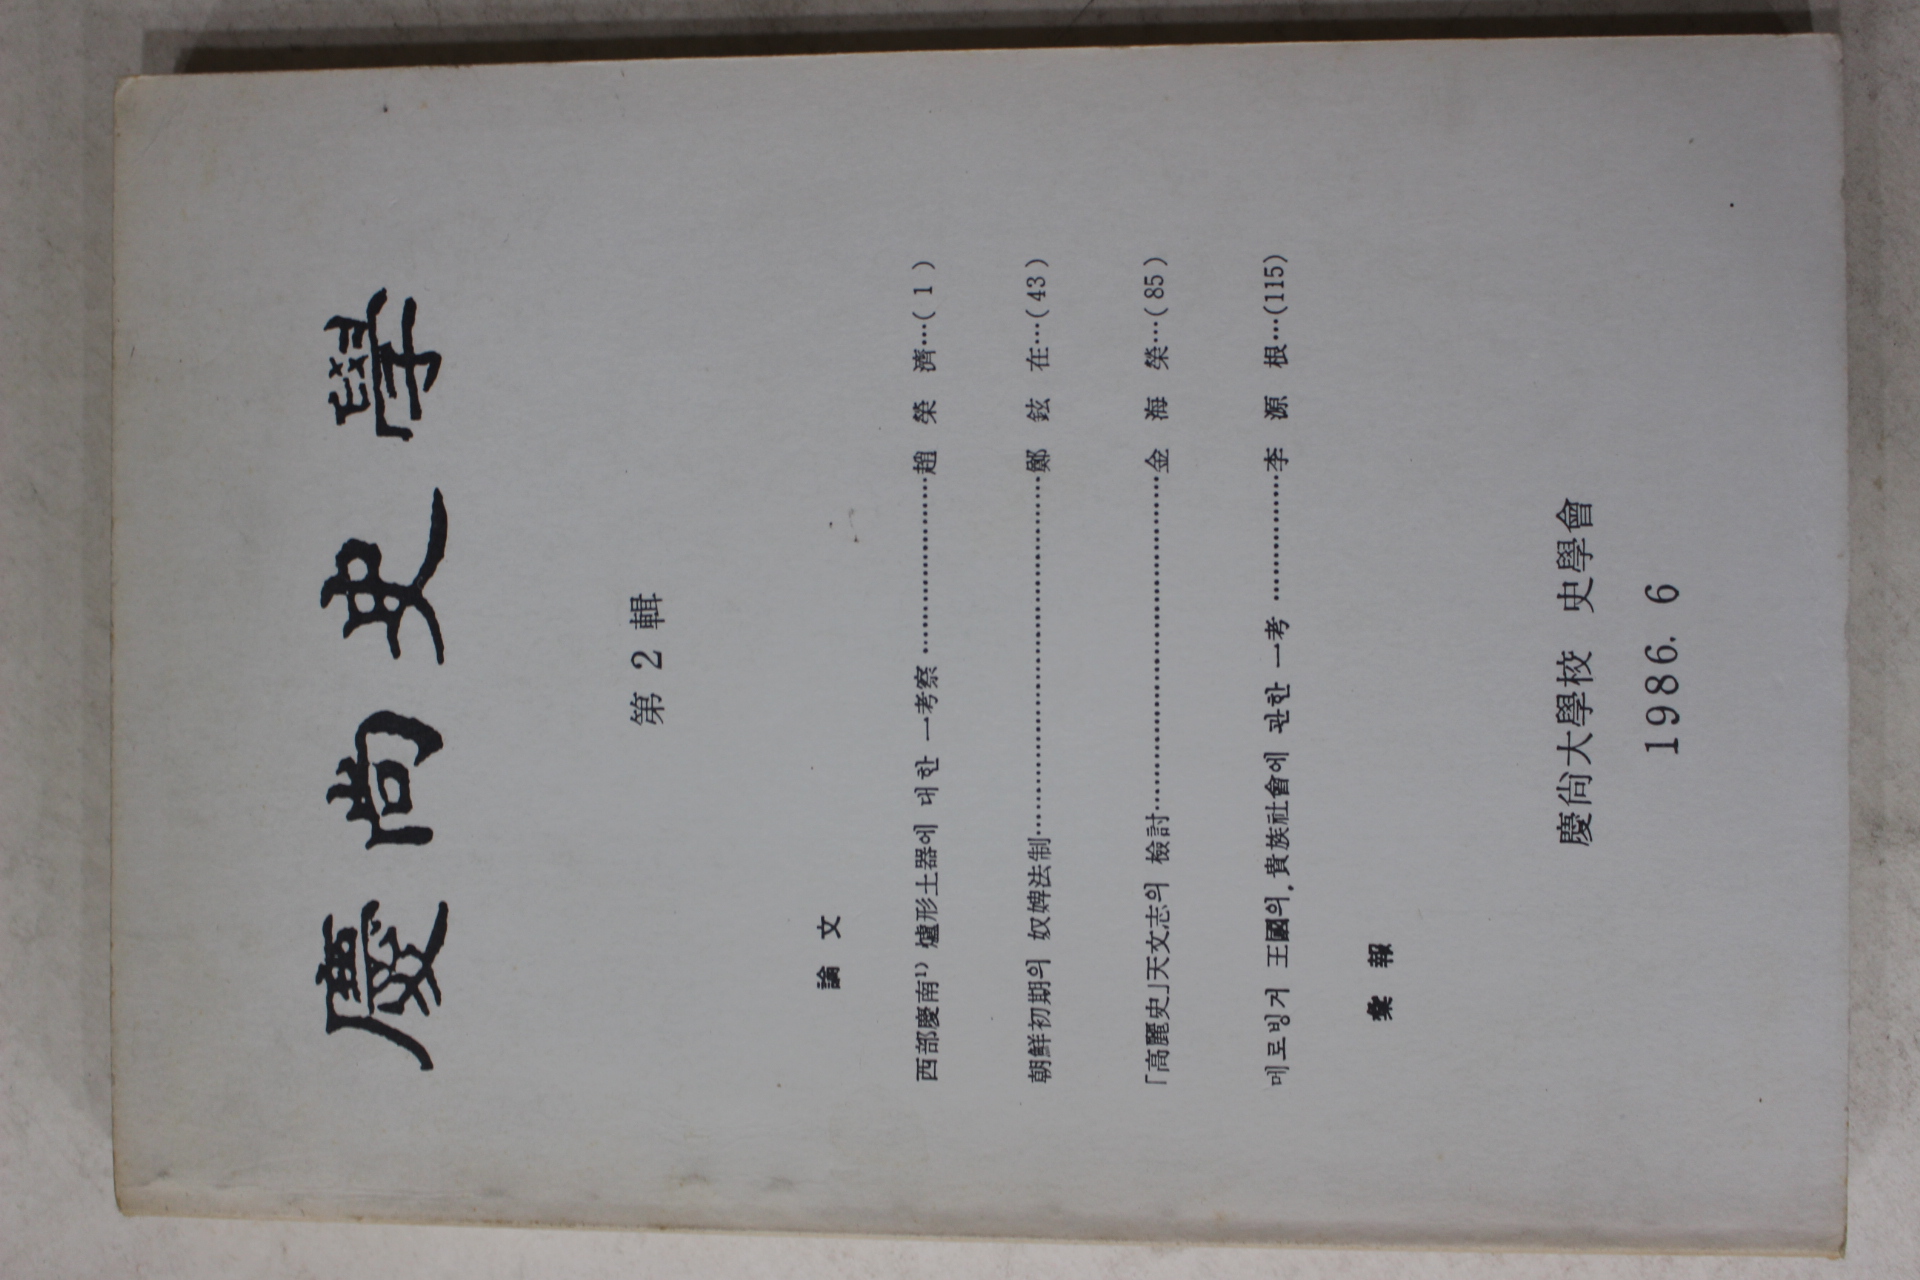 慶尙史學
第 2 輯
論 文
西部慶南¹⁾ 爐形土器에 대한 一考察 ……………………趙 榮 濟…( 1 )
朝鮮初期의 奴婢法制……………………………………鄭 鉉 在…( 43 )
「高麗史」天文志의 檢討…………………………………金 海 榮…( 85 )
메로빙거 王國의, 貴族社會에 관한 一考 ……………李 源 根…(115)
彙 報
慶尙大學校 史學會
1986. 6